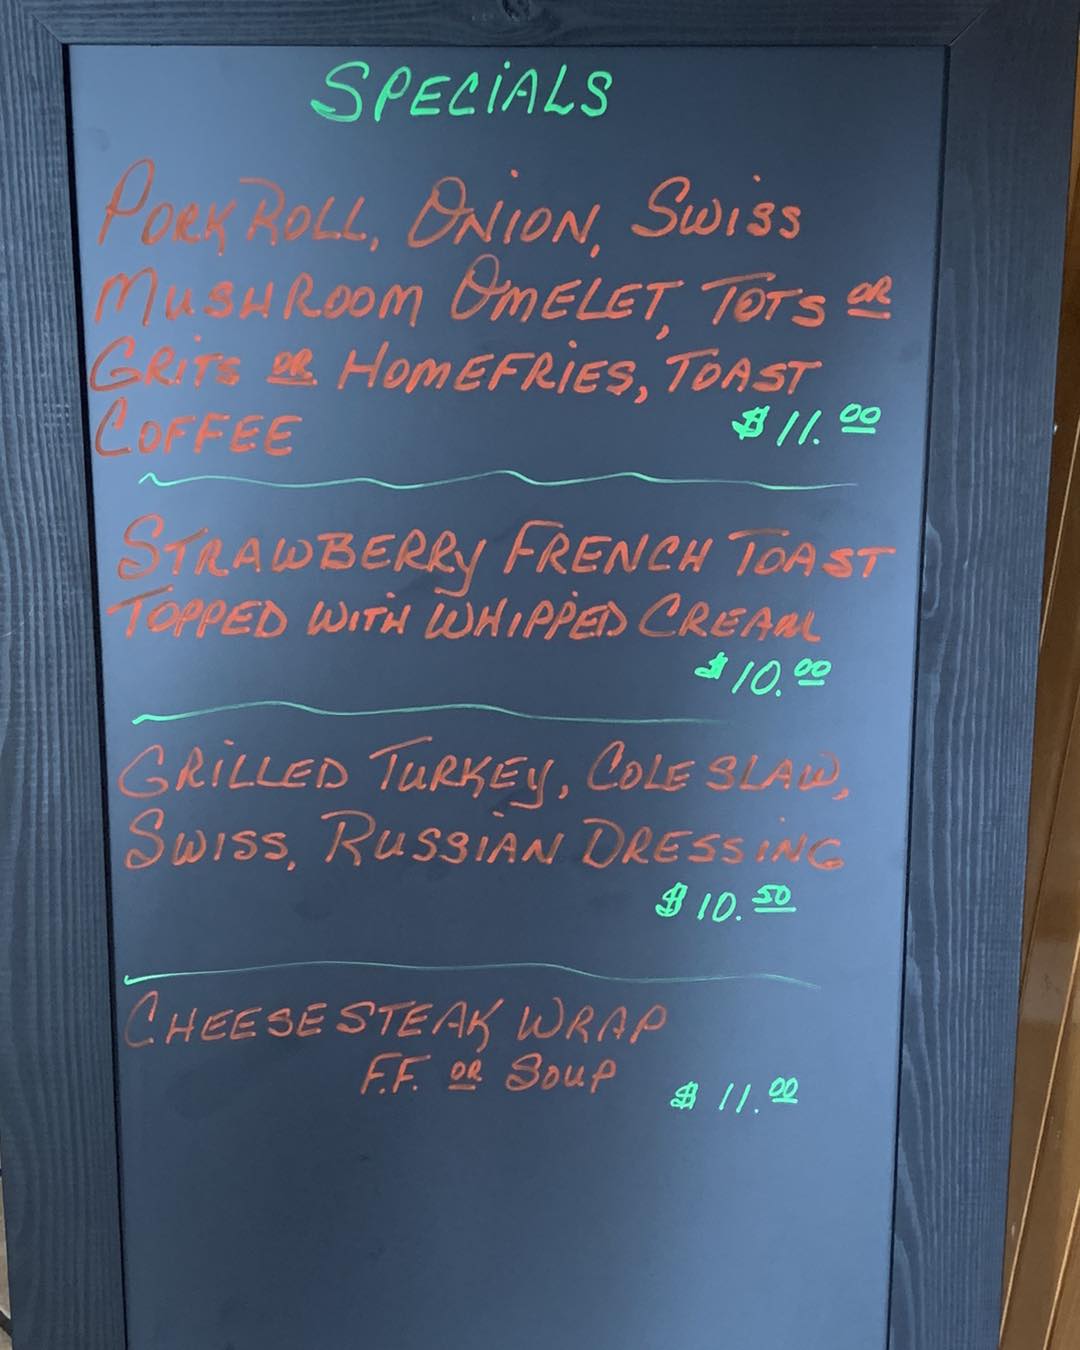 SPECIALS
PORK ROLL, ONION, SWISS
MUSHROOM OMELET, TOTS OR
GRITS OR HOMEFRIES, TOAST
COFFEE $11.00
STRAWBERRY FRENCH TOAST
TOPPED WITH WHIPPED CREAM
$10.00
GRILLED TURKEY, COLE SLAW,
SWISS, RUSSIAN DRESSING
$10.50
CHEESESTEAK WRAP
F.F. OR SOUP $11.00